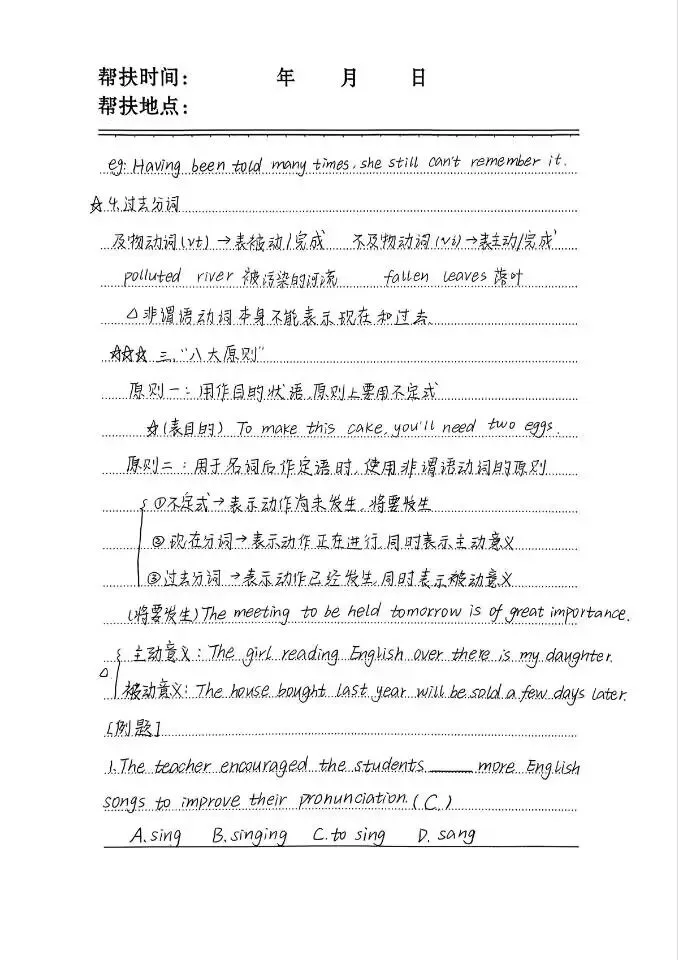 帮扶时间： 年 月 日
帮扶地点：
eg: Having been told many times, she still can't remember it.
☆4.过去分词
及物动词(vt)→表被动/完成 不及物动词(vi)→表主动/完成
polluted river 被污染的河流 fallen leaves 落叶
△非谓语动词本身不能表示现在和过去.
☆☆☆ 三."八大原则"
原则一：用作目的状语,原则上要用不定式
☆(表目的) To make this cake, you'll need two eggs.
原则二：用于名词后作定语时,使用非谓语动词的原则
①不定式→表示动作尚未发生,将要发生
②现在分词→表示动作正在进行,同时表示主动意义
③过去分词→表示动作已经发生,同时表示被动意义
(将要发生)The meeting to be held tomorrow is of great importance.
主动意义：The girl reading English over there is my daughter.
△
被动意义：The house bought last year will be sold a few days later.
[例题]
1.The teacher encouraged the students ____ more English
songs to improve their pronunciation.(C)
A.sing B.singing C.to sing D.sang